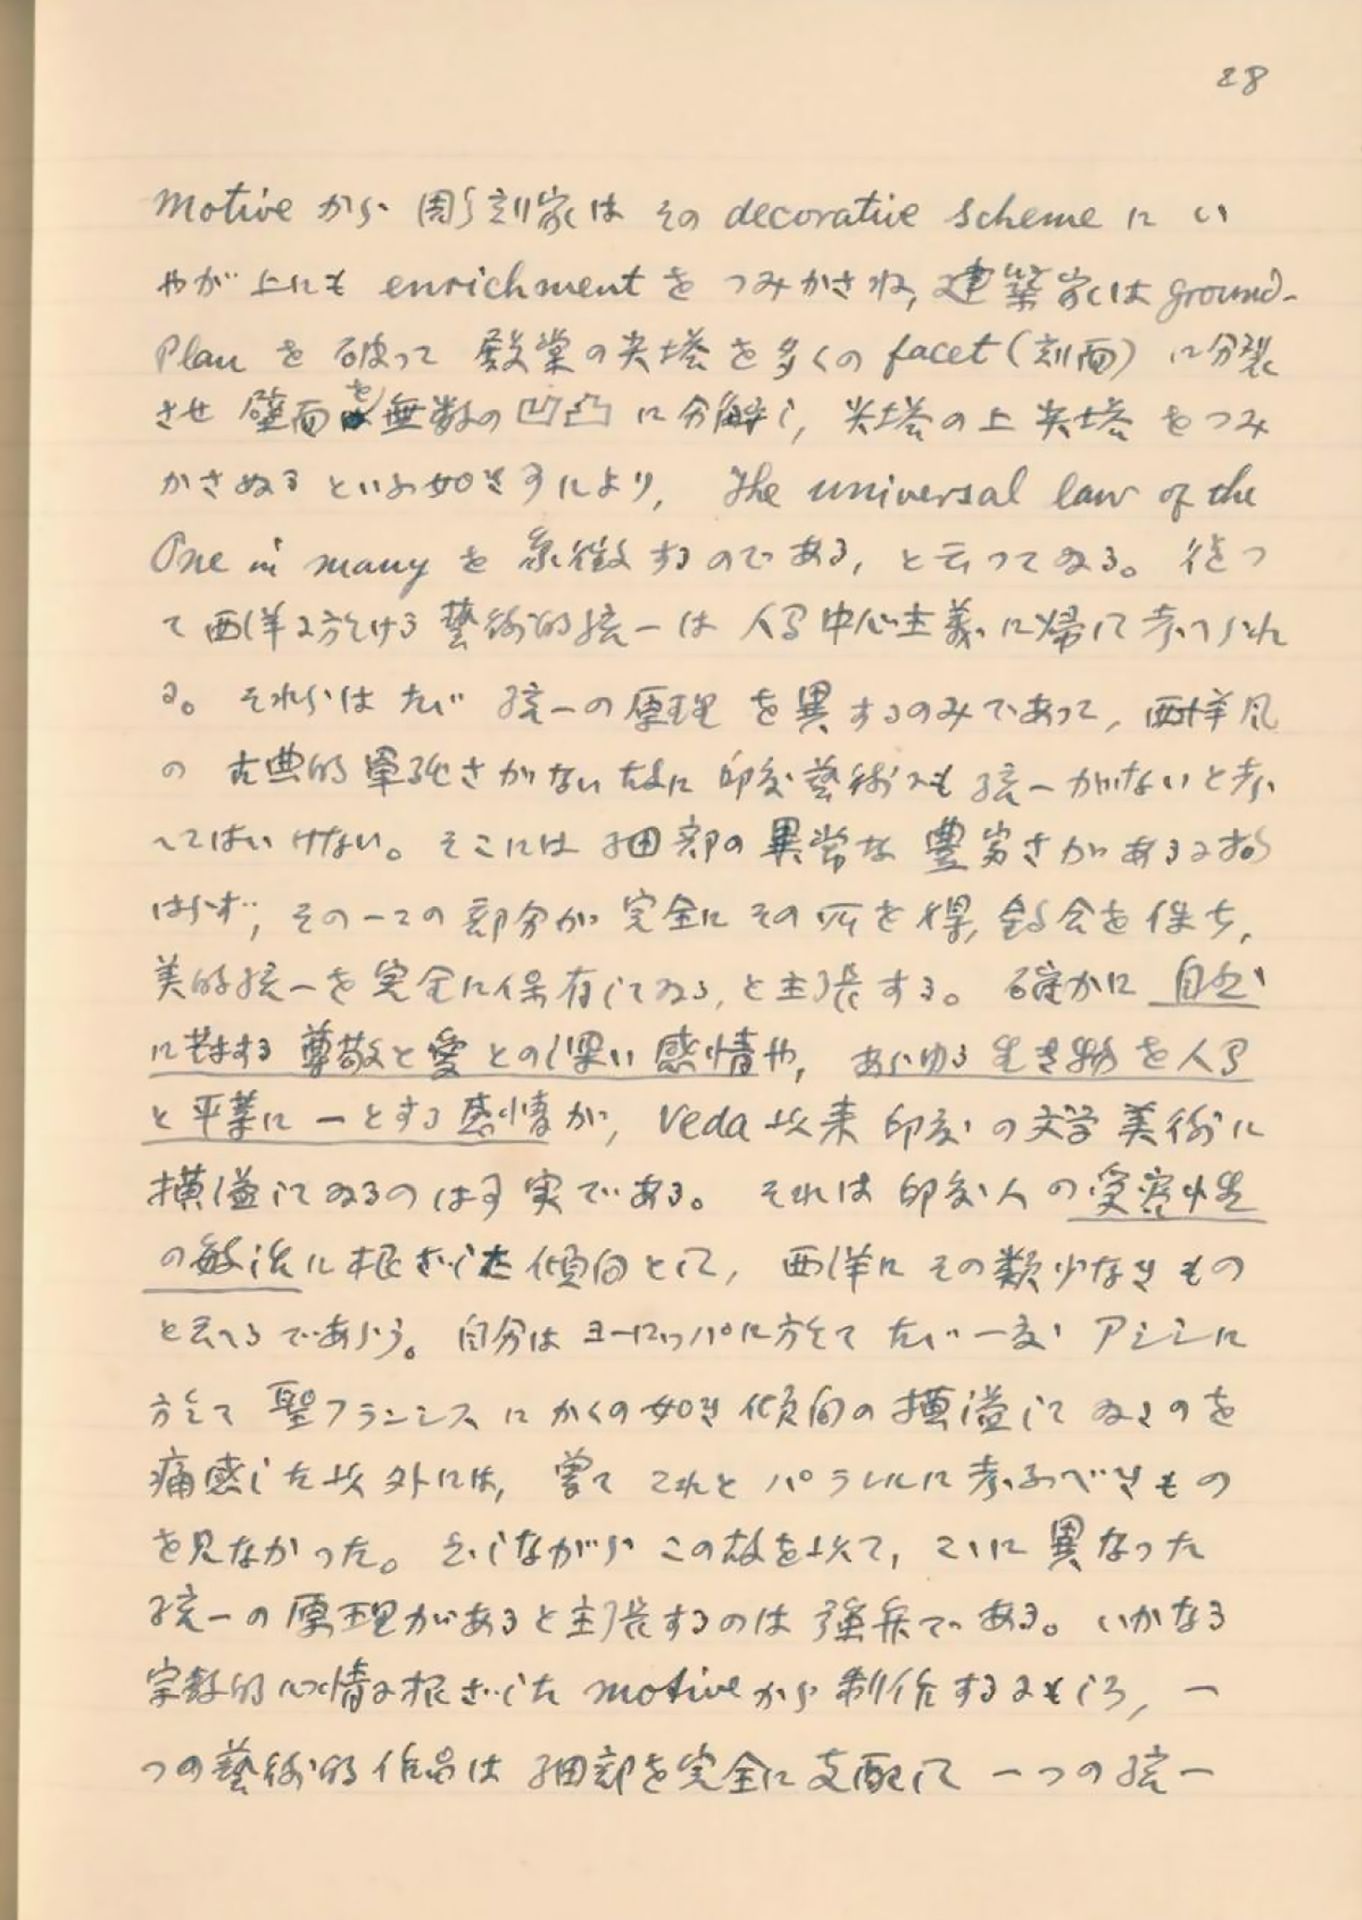 28
motive から 彫刻家は その decorative scheme に い
やが上にも enrichment を つみかさね, 建築家は ground-
plan を 破って 殿堂の尖塔を多くの facet (刻面) に分裂
させ 壁面を無数の凹凸に分解し, 尖塔の上尖塔をつみ
かさぬるといふ如き事により, The universal law of the
One in many を 象徴するのである, と云ってゐる。 従っ
て西洋に於ける藝術的統一は 人間中心主義に帰して考へられ
る。 それらは たゞ 統一の原理を異するのみであって, 西洋風
の 古典的単純さがない故に 印度藝術にも統一がないと考
へてはいけない。 そこには 細部の異常な豊富さがあるに拘
はらず, その一つの部分が完全にその所を得, 釣合を保ち,
美的統一を完全に保有してゐる, と主張する。 確かに 自然
に対する尊敬と愛との深い感情や, あらゆる生き物を人間
と平等に一とする感情が, Veda 以来 印度の文学美術に
横溢してゐるのは事実である。 それは 印度人の受容性
の敏活に根ざした傾向として, 西洋にその類少なきもの
と云へるであらう。 自分はヨーロッパに於て たゞ一度 アシシに
於て聖フランシスにかくの如き傾向の横溢してゐるのを
痛感した以外には, 嘗て これと パラレルに考ふべきもの
を見なかった。 然しながら この故を以て, こゝに異なった
統一の原理があると主張するのは強弁である。 いかなる
宗教的心情に根ざした motive から制作するにもしろ, 一
つの藝術的作品は細部を完全に支配して 一つの統一